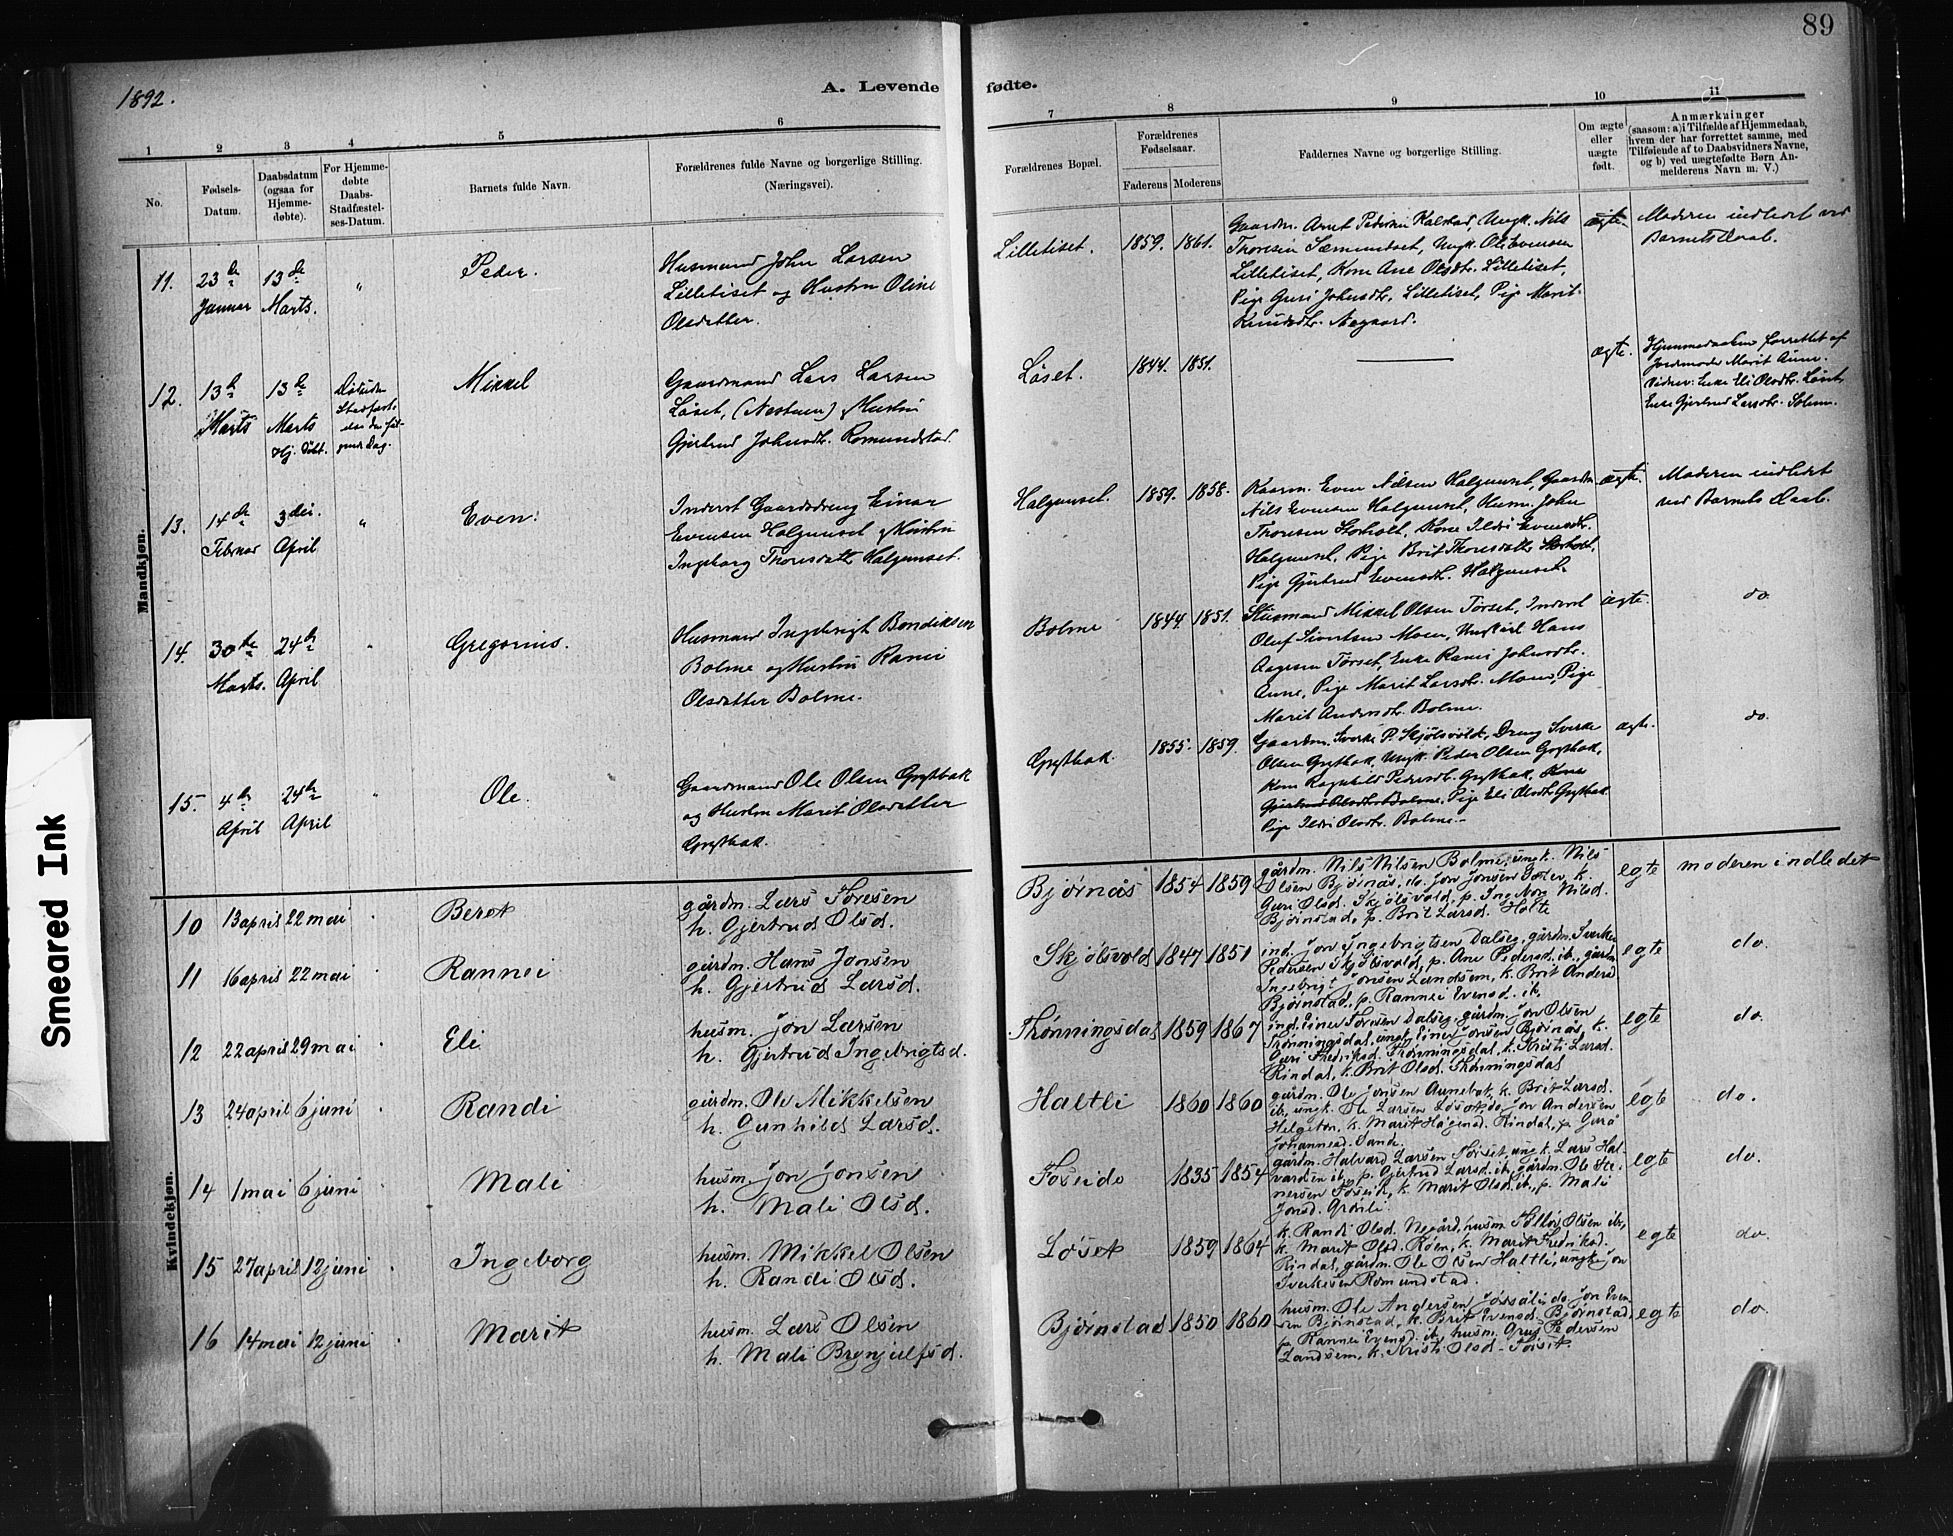 89
1892.
A. Levende fødte.
1 2 3 4 5 6 7 8 9 10 11
No.
Fødsels-Datum.
Daabsdatum (ogsaa for Hjemme-døbte).
For Hjemme-døbte Daabs-Stadfæstel-ses-Datum.
Barnets fulde Navn.
Forældrenes fulde Navne og borgerlige Stilling.
(Næringsvei).
Forældrenes Bopæl.
Forældrenes Fødselsaar.
Faderens Moderens
Faddernes Navne og borgerlige Stilling.
Om ægte eller uægte født.
Anmærkninger
(saasom: a) i Tilfælde af Hjemmedaab,
hvem der har forrettet samme, med
Tilføiende af to Daabsvidners Navne,
og b) ved uægtefødte Børn An-
melderens Navn m. V.)
Mandkjøn.
11. 23de Januar 13de Marts. " Peder.
Husmand John Larsen
Lilletiset og Hustru Oline
Olsdatter.
Lilletiset. 1859. 1861.
Gaardm. Arnt Pedersen Kalstad, Ungk. Nils
Thoresen Sæmundset, Ungk. Ole Evensen
Lilletiset, Kone Ane Olsdtr. Lilletiset,
Pige Guri Johnsdtr. Lilletiset, Pige Marit
Knudsdtr. Aagaard.
ægte.
Moderen indledet ved
Barnets Daab.
12. 13de Marts 13de Marts Hj. Døbt. Mikkel
Gaardmand Lars Larsen
Løset, (Nestuen) & Hustru
Gjertrud Johnsdtr. Romundstad.
Løset. 1844. 1851.
ægte.
Hjemmedaaben forrettet af
Jordemoder Marit Aune.
Vidner: Enke Eli Olsdtr. Løset,
Enke Gjertrud Larsdtr. Solem.
13. 14de Februar 3die April " Even.
Inderst Gaardsdreng Einar
Evensen Halgunset & Hustru
Ingeborg Thoresdatter Halgunset.
Halgunset. 1859. 1858.
Kaarm. Even Nilsen Halgunset, Gaardm.
Nils Evensen Halgunset, Husm. John
Thoresen Storholt, Kone Ildri Evensdtr.
Halgunset, Pige Brit Thoresdatter Storholt,
Pige Gjertrud Evensdtr. Halgunset.
ægte.
Moderen indledet
ved Barnets Daab.
14. 30te Marts. 24de April " Gregorius.
Husmand Ingebrigt Bendiksen
Bolme og Hustru Ranei
Olsdatter Bolme.
Bolme 1844. 1851.
Husmand Mikkel Olsen Tørset, Inderst
Oluf Sivertsen Moen, Ungkarl Hans
Aagesen Tørset, Enke Ranei Johnsdtr.
Aune, Pige Marit Larsdtr. Moen, Pige
Marit Andersdtr. Bolme.
ægte.
do.
15. 4de April 24de April " Ole.
Gaardmand Ole Olsen Grytbak
og Hustru Marit Olsdatter
Grytbak.
Grytbak. 1855. 1859.
Gaardm. Sverke P. Skjølsvold, Dreng Sverke
Olsen Grytbak, Ungk. Peder Olsen Grytbak,
Kone Ragnhild Pedersdtr. Grytbak, Kone
Gjertrud Olsdtr. Bolme, Pige Eli Olsdtr. Grytbak
Pige Ildri Olsdtr. Bolme.
ægte.
do.
Kvindekjøn.
10 13 april 22 mai Beret
gårdm. Lars Toresen
h. Gjertrud Olsd.
Bjørnås 1854 1859
gårdm. Nils Nilsen Bolme, ungk. Nils
Olsen Bjørnås, do. Jon Jonsen k.
Guri Olsd. Skjølsvold, p. Ingeborg Nilsd.
Bjørnstad, p. Brit Larsd. Holte
egte
moderen indledet
11 16 april 22 mai Rannei
gårdm. Hans Jonsen
h. Gjertrud Larsd.
Skjølsvold 1847 1851
ind. Jon Ingebrigtsen Dalseg, gårdm. Sverke
Pedersen Skjølsvold, p. Ane Pedersd. ib., gårdm.
Ingebrigt Jonsen Landsem, k. Brit Andersd.
Bjørnstad, p. Rannei Evensd. ib.
egte
do.
12 22 april 29 mai Eli
husm. Jon Larsen
h. Gjertrud Ingebrigtsd.
Thønningsdal 1859 1867
ind. Einer Toresen Dalseg, gårdm. Jon Olsen
Trønningsdal, ungk. Einer Jonsen Bjørnås, k.
Guri Fredriksd. Trønningsdal, k. Kristi Larsd.
Rindal, k. Brit Olsd. Thønningsdal
egte
do.
13 24 april 6 juni Randi
gårdm. Ole Mikkelsen
h. Gunhild Larsd.
Haltli 1860 1860
gårdm. Ole Jonsen Aunebak, k. Brit Larsd.
ib, ungk. Ole Larsen Løset, do. Jon Andersen
Helgeton, k. Marit Hågensd. Rindal, p. Gurå
Johannesd. Sande.
egte
do.
14 1 mai 6 juni Mali
husm. Jon Jonsen
h. Mali Olsd.
Foseide 1835 1854
gårdm. Halvard Larsen Tørset, ungk. Lars Hal-
vardsen ib, p. Gjertrud Larsd. ib, gårdm. Ole Ste-
nersen Foseid, k. Marit Olsd. ib., p. Mali
Jonsd. Grønli.
egte
do.
15 27 april 12 juni Ingeborg
husm. Mikkel Olsen
h. Randi Olsd.
Løset 1859 1864
k. Randi Olsd. Negård, husm. Tollev Olsen ib,
k. Marit Olsd. Røen, k. Marit Fredriksd.
Rindal, gårdm. Ole Olsen Haltli, ungk. Jon
Sverkesen Romundstad.
egte
do.
16 14 mai 12 juni Marit
husm. Lars Olsen
h. Mali Brynjulfsd.
Bjørnstad 1850 1860
husm. Ole Andersen do. Jon Even-
sen Bjørnstad, k. Brit Evensd. Bjørnstad,
p. Rannei Evensd. ib, husm. Pedersen
Landsem, k. Kristi Olsd. Tørset.
egte
do.
Smeared Ink